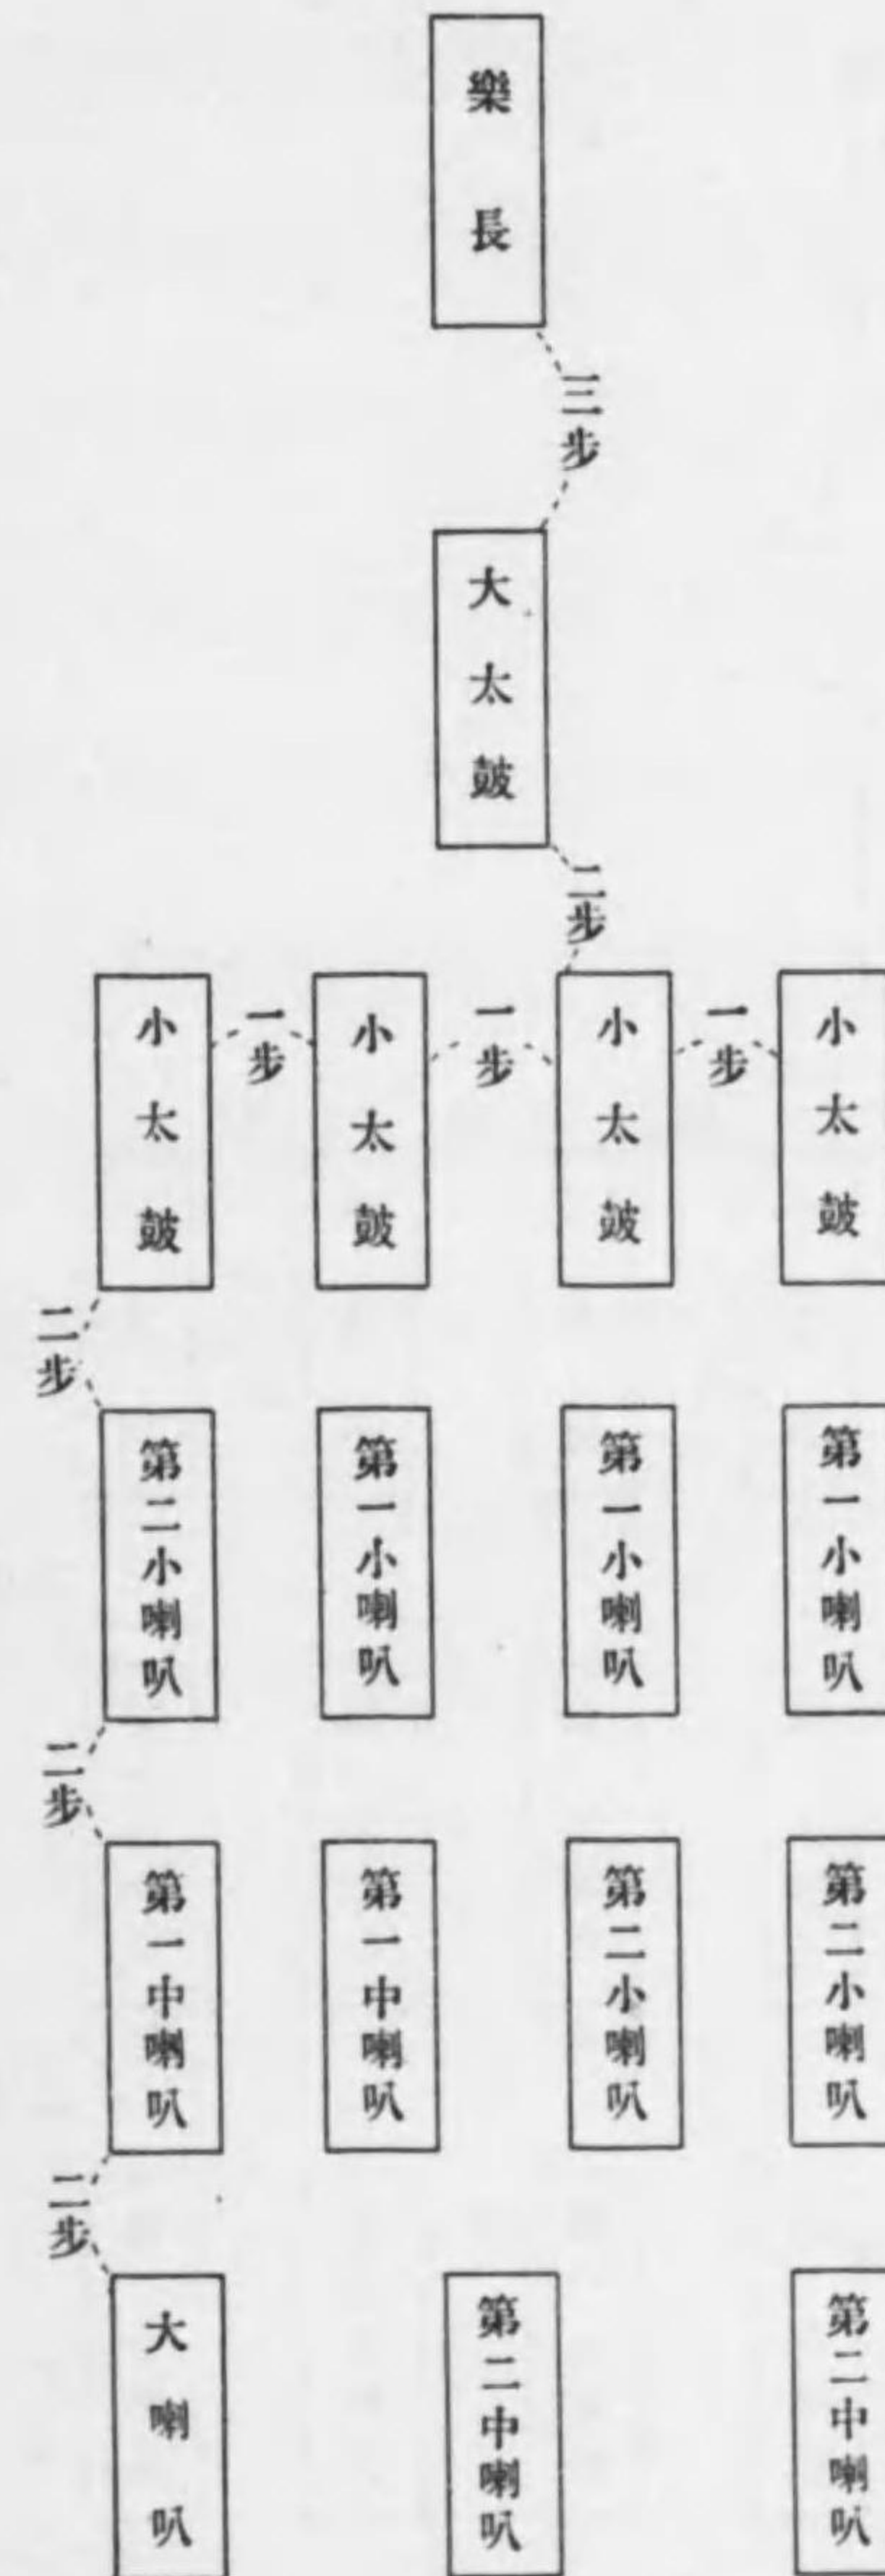 樂長
三步
大太鼓
二步
小太鼓
一步
小太鼓
一步
小太鼓
一步
小太鼓
二步
第一小喇叭
第一小喇叭
第一小喇叭
第二小喇叭
二步
第二小喇叭
第二小喇叭
第一中喇叭
第一中喇叭
二步
第二中喇叭
第二中喇叭
大喇叭